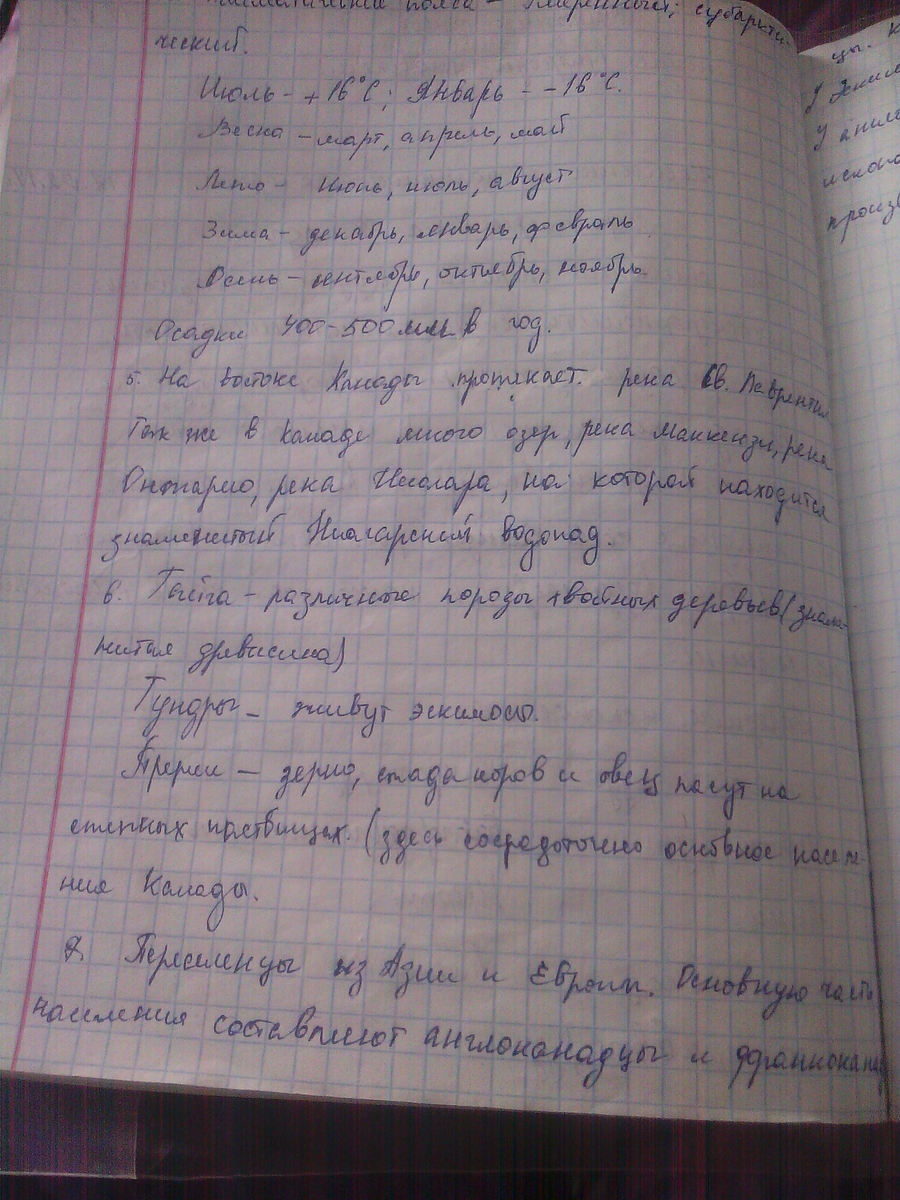 климатические пояса - умеренный; субаркти-
ческий.
Июль - +16°С; Январь - -16°С.
Весна - март, апрель, май
Лето - июнь, июль, август
Зима - декабрь, январь, февраль
Осень - сентябрь, октябрь, ноябрь.
Осадки 400-500 мм в год.
5. На востоке Канады протекает река Св. Лаврентия
Так же в Канаде много озер, река Маккензи, река
Онтарио, река Ниагара, на которой находится
знаменитый Ниагарский водопад.
6. Тайга - различные породы хвойных деревьев (знаме-
нитая древесина)
Тундры - живут эскимосы.
Прерии - зерно, стада коров и овец пасут на
степных пастбищах. (здесь сосредоточено основное населе-
ния Канады.
7. Переселенцы из Азии и Европы. Основную часть
населения составляют англоканадцы и франкокана
цы. К
У эским
У англ
ископа
произв